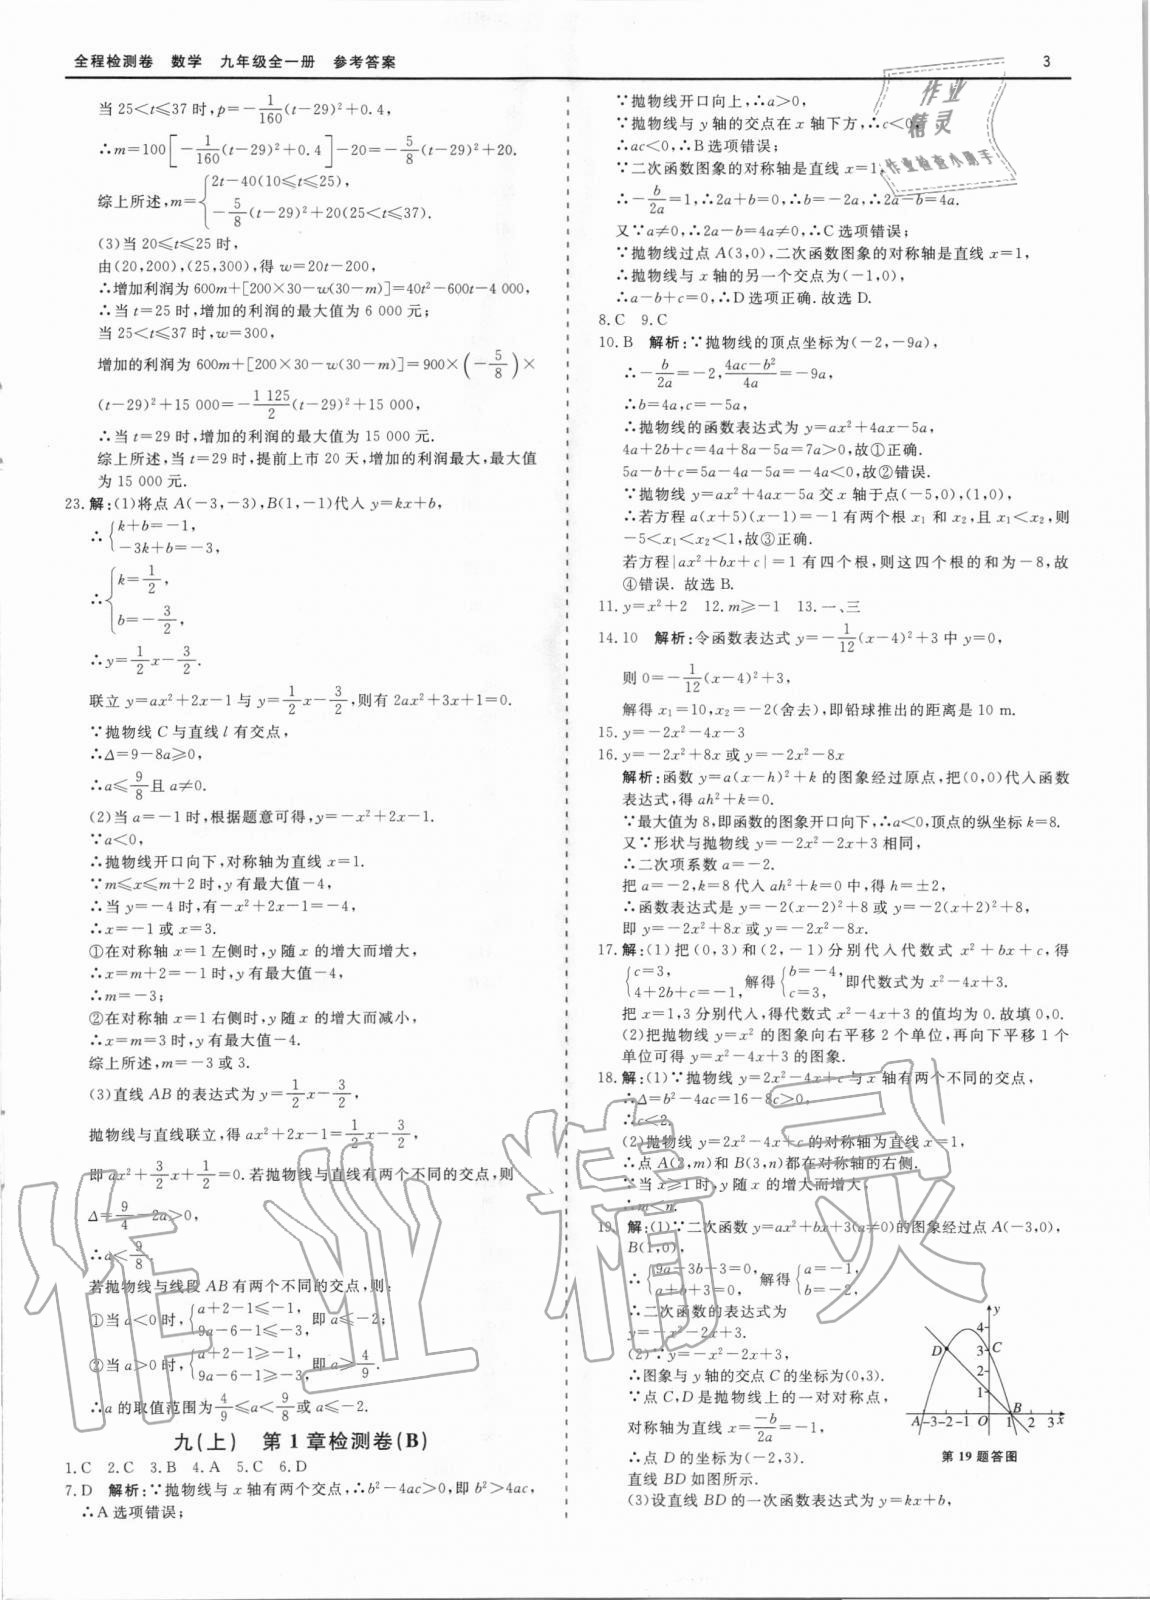 全程检测卷　数学　九年级全一册　参考答案
3
当 25<t≤37 时,p=-1/160(t-29)²+0.4,
∴m=100[-1/160(t-29)²+0.4]-20=-5/8(t-29)²+20.
综上所述,m={2t-40(10≤t≤25),
-5/8(t-29)²+20(25<t≤37).
(3)当 20≤t≤25 时,
由(20,200),(25,300),得 w=20t-200,
∴增加利润为 600m+[200×30-w(30-m)]=40t²-600t-4 000,
∴当 t=25 时,增加的利润的最大值为 6 000 元;
当 25<t≤37 时,w=300,
增加的利润为 600m+[200×30-w(30-m)]=900×(-5/8)×
(t-29)²+15 000=-1 125/2(t-29)²+15 000,
∴当 t=29 时,增加的利润的最大值为 15 000 元.
综上所述,当 t=29 时,提前上市 20 天,增加的利润最大,最大值
为 15 000 元.
23.解:(1)将点 A(-3,-3),B(1,-1)代入 y=kx+b,
∴{k+b=-1,
-3k+b=-3,
∴{k=1/2,
b=-3/2,
∴y=1/2x-3/2.
联立 y=ax²+2x-1 与 y=1/2x-3/2,则有 2ax²+3x+1=0.
∵抛物线 C 与直线 l 有交点,
∴Δ=9-8a≥0,
∴a≤9/8且 a≠0.
(2)当 a=-1 时,根据题意可得,y=-x²+2x-1.
∵a<0,
∴抛物线开口向下,对称轴为直线 x=1.
∵m≤x≤m+2 时,y 有最大值-4,
∴当 y=-4 时,有-x²+2x-1=-4,
∴x=-1 或 x=3.
①在对称轴 x=1 左侧时,y 随 x 的增大而增大,
∴x=m+2=-1 时,y 有最大值-4,
∴m=-3;
②在对称轴 x=1 右侧时,y 随 x 的增大而减小,
∴x=m=3 时,y 有最大值-4.
综上所述,m=-3 或 3.
(3)直线 AB 的表达式为 y=1/2x-3/2,
抛物线与直线联立,得 ax²+2x-1=1/2x-3/2,
即 ax²+3/2x+1/2=0.若抛物线与直线有两个不同的交点,则
Δ=9/4-2a>0,
∴a<9/8.
若抛物线与线段 AB 有两个不同的交点,则:
①当 a<0 时,{a+2-1≤-1,
9a-6-1≤-3,即 a≤-2;
②当 a>0 时,{a+2-1≥-1,
9a-6-1≥-3,即 a≥4/9.
∴a 的取值范围为4/9≤a<9/8或 a≤-2.
九(上)　第 1 章检测卷(B)
1.C　2.C　3.B　4.A　5.C　6.D
7.D　解析:∵抛物线与 x 轴有两个交点,∴b²-4ac>0,即 b²>4ac,
∴A 选项错误;
∵抛物线开口向上,∴a>0,
∵抛物线与 y 轴的交点在 x 轴下方,∴c<0,
∴ac<0,∴B 选项错误;
∵二次函数图象的对称轴是直线 x=1,
∴-b/2a=1,∴2a+b=0,∴b=-2a,∴2a-b=4a.
又∵a≠0,∴2a-b=4a≠0,∴C 选项错误;
∵抛物线过点 A(3,0),二次函数图象的对称轴是直线 x=1,
∴抛物线与 x 轴的另一个交点为(-1,0),
∴a-b+c=0,∴D 选项正确.故选 D.
8.C　9.C
10.B　解析:∵抛物线的顶点坐标为(-2,-9a),
∴-b/2a=-2,(4ac-b²)/4a=-9a,
∴b=4a,c=-5a,
∴抛物线的函数表达式为 y=ax²+4ax-5a,
4a+2b+c=4a+8a-5a=7a>0,故①正确.
5a-b+c=5a-4a-5a=-4a<0,故②错误.
∵抛物线 y=ax²+4ax-5a 交 x 轴于点(-5,0),(1,0),
∴若方程 a(x+5)(x-1)=-1 有两个根 x₁ 和 x₂,且 x₁<x₂,则
-5<x₁<x₂<1,故③正确.
若方程|ax²+bx+c|=1 有四个根,则这四个根的和为-8,故
④错误. 故选 B.
11.y=x²+2　12.m≥-1　13.一、三
14.10　解析:令函数表达式 y=-1/12(x-4)²+3 中 y=0,
则 0=-1/12(x-4)²+3,
解得 x₁=10,x₂=-2(舍去),即铅球推出的距离是 10 m.
15.y=-2x²-4x-3
16.y=-2x²+8x 或 y=-2x²-8x
解析:函数 y=a(x-h)²+k 的图象经过原点,把(0,0)代入函数
表达式,得 ah²+k=0.
∵最大值为 8,即函数的图象开口向下,∴a<0,顶点的纵坐标 k=8.
又∵形状与抛物线 y=-2x²-2x+3 相同,
∴二次项系数 a=-2.
把 a=-2,k=8 代入 ah²+k=0 中,得 h=±2,
∴函数表达式是 y=-2(x-2)²+8 或 y=-2(x+2)²+8,
即 y=-2x²+8x 或 y=-2x²-8x.
17.解:(1)把(0,3)和(2,-1)分别代入代数式 x²+bx+c,得
{c=3,
4+2b+c=-1,解得{b=-4,
c=3,即代数式为 x²-4x+3.
把 x=1,3 分别代入,得代数式 x²-4x+3 的值均为 0.故填 0,0.
(2)把抛物线 y=x² 的图象向右平移 2 个单位,再向下平移 1 个
单位可得 y=x²-4x+3 的图象.
18.解:(1)∵抛物线 y=2x²-4x+c 与 x 轴有两个不同的交点,
∴Δ=b²-4ac=16-8c>0,
∴c<2.
(2)抛物线 y=2x²-4x+c 的对称轴为直线 x=1,
∴点 A(2,m)和 B(3,n)都在对称轴的右侧.
∵当 x≥1 时,y 随 x 的增大而增大,
∴m<n.
19.解:(1)∵二次函数 y=ax²+bx+3(a≠0)的图象经过点 A(-3,0),
B(1,0),
∴{9a-3b+3=0,
a+b+3=0,解得{a=-1,
b=-2,
∴二次函数的表达式为
y=-x²-2x+3.
(2)∵y=-x²-2x+3,
∴图象与 y 轴的交点 C 的坐标为(0,3).
∵点 C,D 是抛物线上的一对对称点,
对称轴为直线 x=-b/2a=-1,
∴点 D 的坐标为(-2,3).
直线 BD 如图所示.
(3)设直线 BD 的一次函数表达式为 y=kx+b,
y
4
D 3 C
2
1
B
A -3 -2 -1 O 1 2 3 x
第 19 题答图
作业
精灵
作业检查小助手
作业精灵